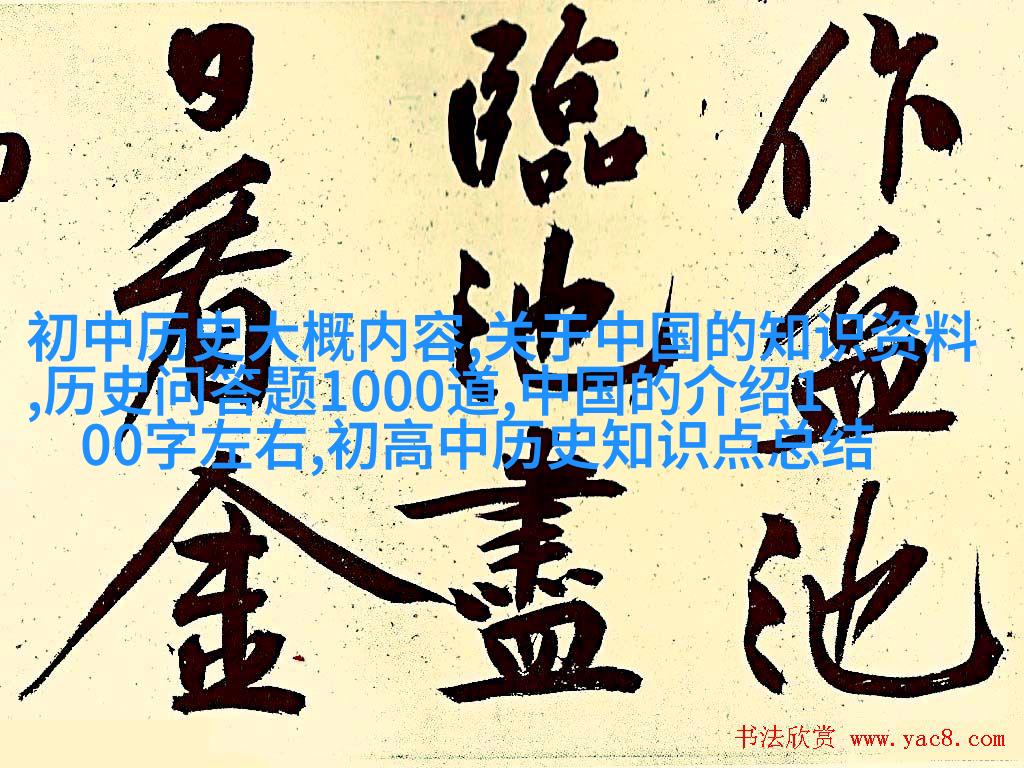 作盆池
臨池盡
日看金
初中历史大概内容,关于中国的知识资料
,历史问答题1000道,中国的介绍1
00字左右,初高中历史知识点总结
书法欣赏 www.yac8.com